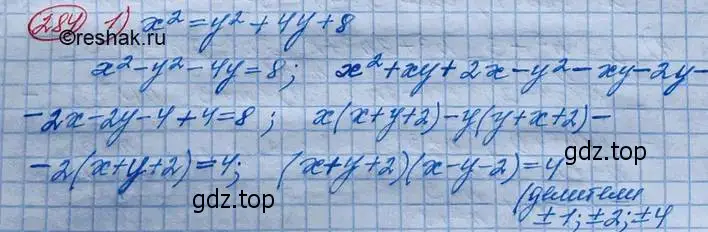 284 1) x² = y² + 4y + 8
©reshak.ru
x² - y² - 4y = 8; x² + xy + 2x - y² - xy - 2y -
- 2x - 2y - 4 + 4 = 8; x(x + y + 2) - y(y + x + 2) -
- 2(x + y + 2) = 4; (x + y + 2)(x - y - 2) = 4
gdz.top gdz.top
(делители
± 1; ± 2; ± 4